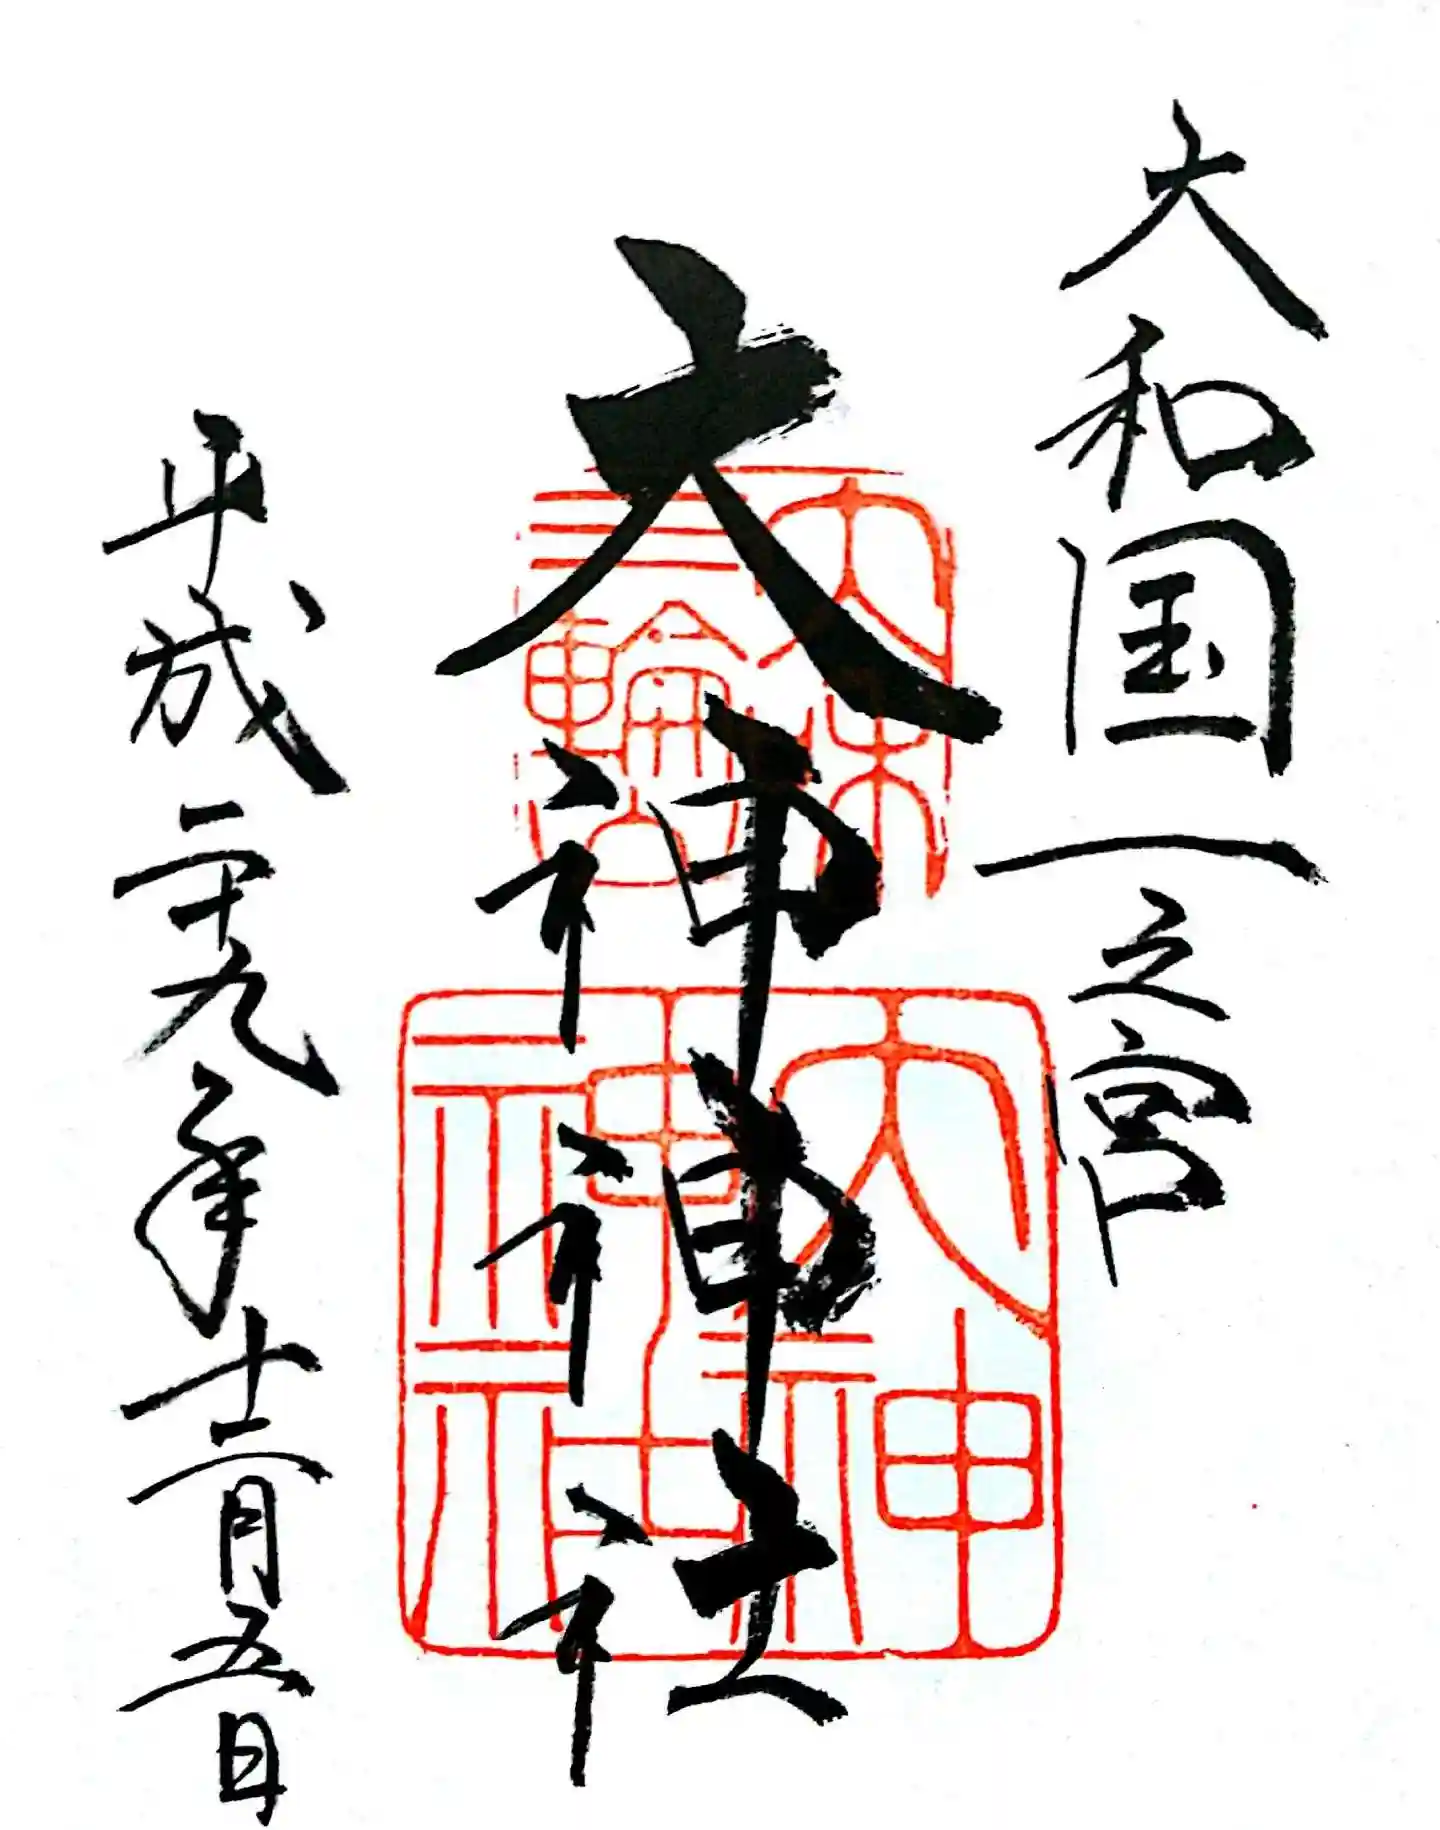 大和国一之宮
大神神社
平成二十九年十二月五日
三輪
大神
神社